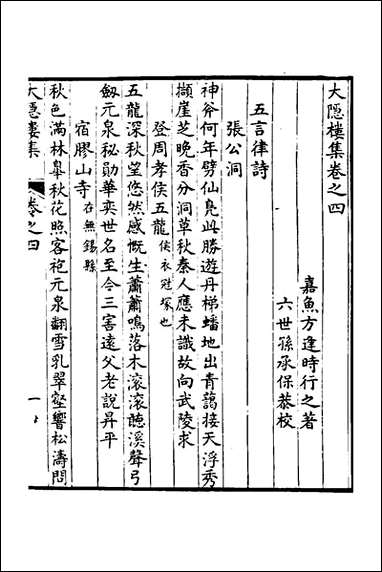 大隱樓集卷之四
嘉魚方逢時行之著
六世孫承保恭校
五言律詩
張公洞
神斧何年劈仙鳧此勝遊丹梯蟠地出青靄接天浮秀
擷崖芝晚香分洞草秋秦人應未識故向武陵求
登周孝侯五龍侯衣冠塚也
五龍深秋望悠然感慨生蕭蕭鳴落木滚滚聽溪聲弓
劔元泉秘勛華奕世名至今三害遠父老說昇平
宿膠山寺在無錫縣
秋色滿林皋秋花照客袍元泉翻雪乳翠壑響松濤問
大隱樓集
卷之四
一